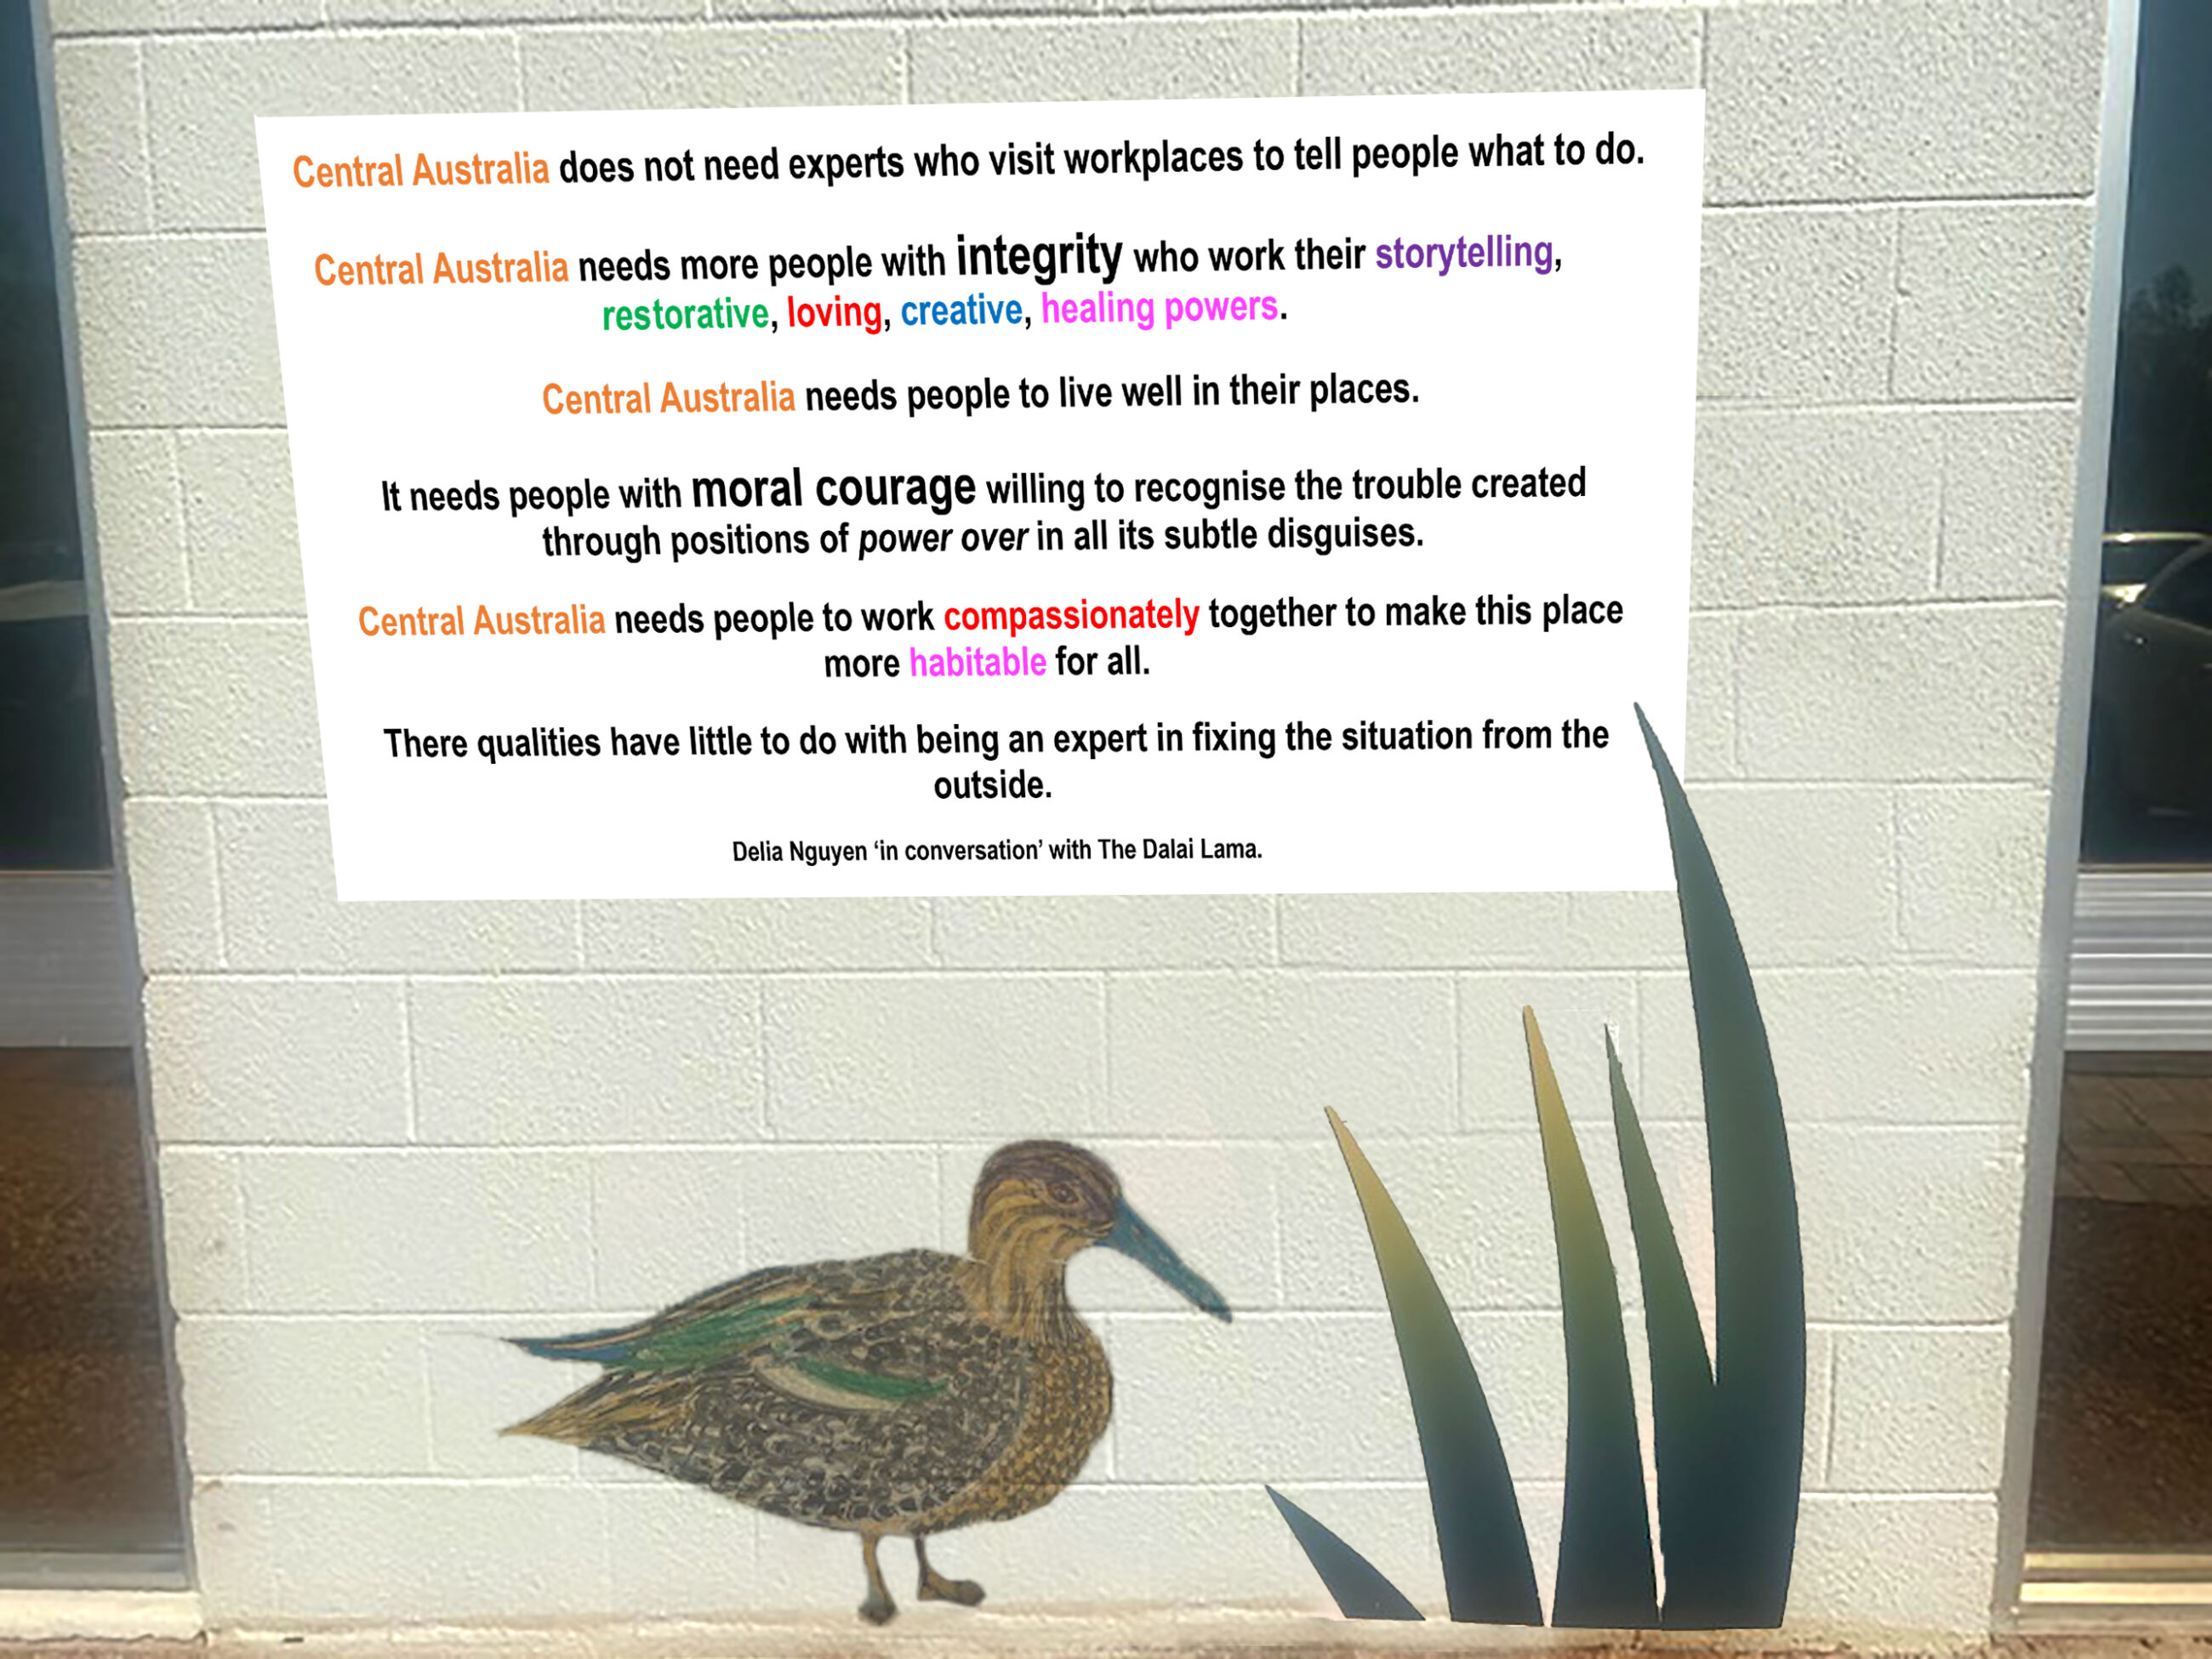 Central Australia does not need experts who visit workplaces to tell people what to do.
Central Australia needs more people with integrity who work their storytelling,
restorative, loving, creative, healing powers.
Central Australia needs people to live well in their places.
It needs people with moral courage willing to recognise the trouble created
through positions of power over in all its subtle disguises.
Central Australia needs people to work compassionately together to make this place
more habitable for all.
There qualities have little to do with being an expert in fixing the situation from the
outside.
Delia Nguyen ‘in conversation’ with The Dalai Lama.